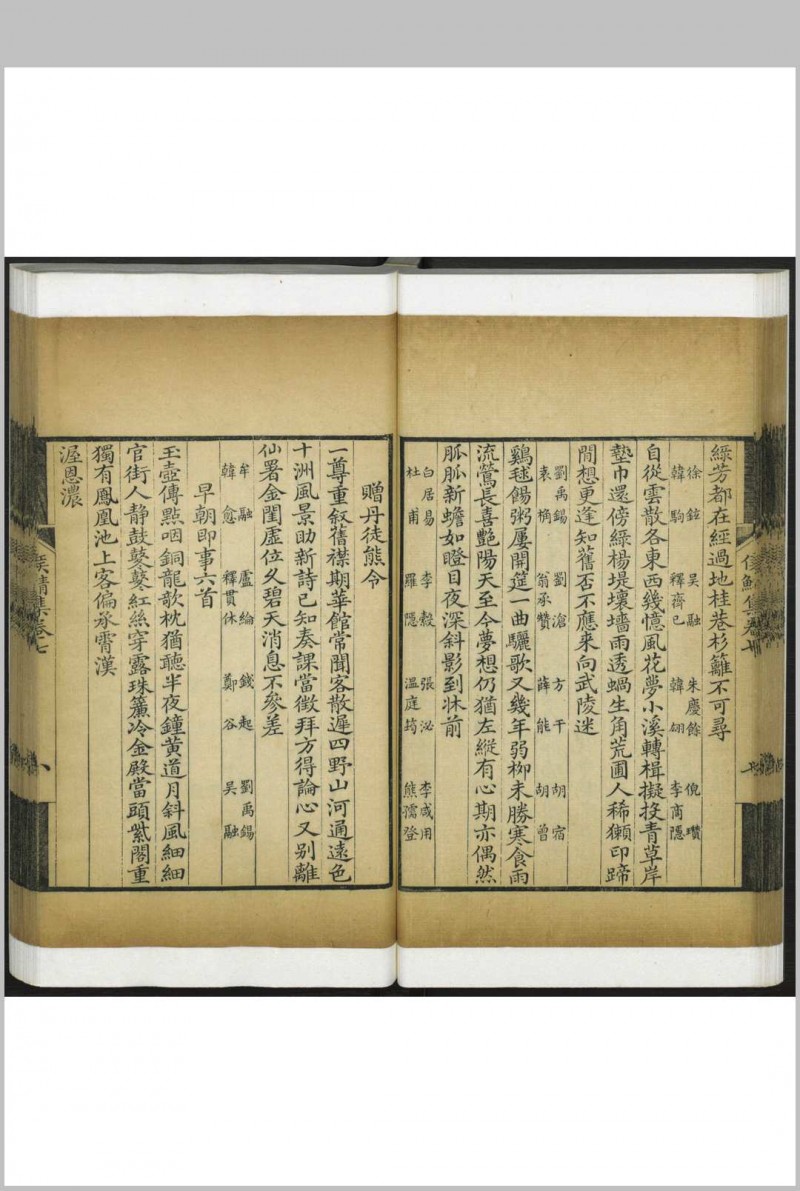 綠芳都在經過地桂巷杉籬不可尋
徐鉉 吳融 朱慶餘 倪瓚
韓駒 釋齊己 韓翃 李商隱
自從雲散各東西幾憶風花夢小溪轉楫擬投青草岸
墊巾還傍綠楊堤壞墻雨透蝸生角荒圃人稀獺印蹄
閒想更逢知舊否不應来向武陵迷
劉禹錫 劉滄 方干 胡宿
袁桷 翁承贊 薛能 胡曾
鷄毬餳粥屢開筵一曲驪歌又幾年弱柳未勝寒食雨
流鶯長喜艷陽天至今夢想仍猶左縱有心期亦偶然
脈脈新蟾如瞪目夜深斜影到牀前
白居易 李縠 張泌 李咸用
杜甫 羅隱 溫庭筠 熊孺登
侯鯖集卷七
贈丹徒熊令
一尊重叙舊襟期華館常聞客散遲四野山河通遠色
十洲風景助新詩已知奏課當徵拜方得論心又别離
仙署金閨虛位久碧天消息不參差
牟融 盧綸 錢起 劉禹錫
韓愈 釋貫休 鄭谷 吳融
早朝即事六首
玉壺傳點咽銅龍欹枕猶聽半夜鐘黄道月斜風細細
官街人静鼓鼕鼕紅絲穿露珠簾冷金殿當頭紫閣重
獨有鳳凰池上客偏承霄漢
渥恩濃
侯鯖集卷七
八